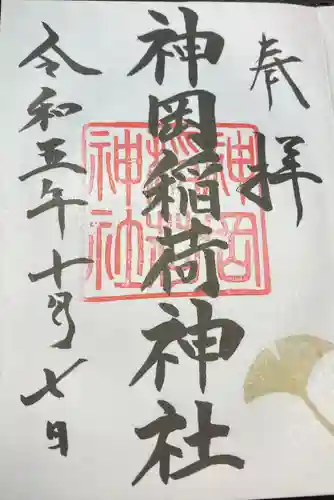 奉拝
神岡稲荷神社
令和五年十月七日
神岡
稲荷
神社